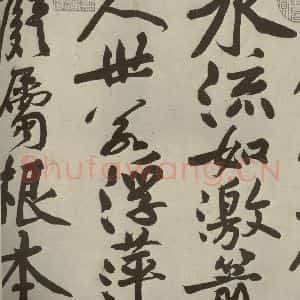 水流如激箭
人世若浮萍
顧屬根本
Shufawang.CN